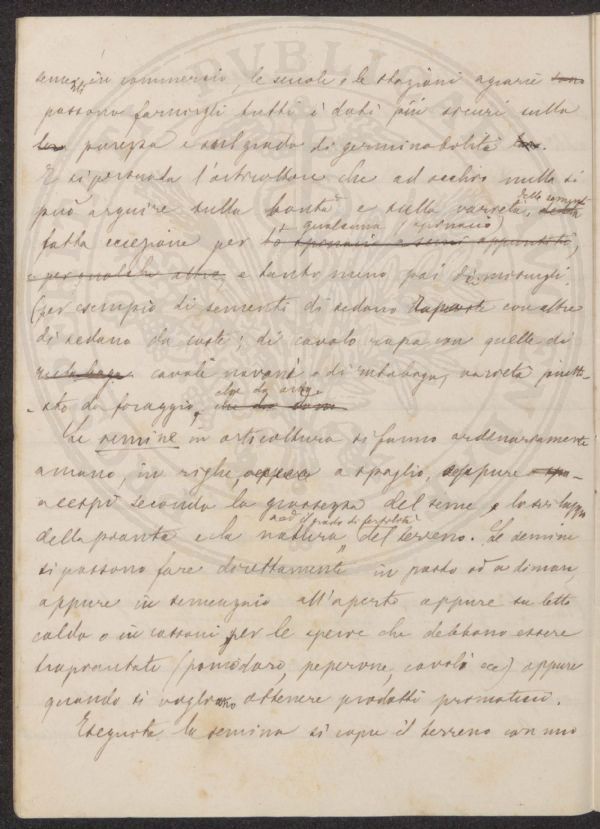 semenze in commercio, le scuole e le stazioni agrarie
possono fornirgli tutti i dati più sicuri sulla
purezza e sul grado di germinabilità.
E si persuada l'orticultore che ad occhio nulla si
può arguire sulla bontà e sulla varietà delle sementi
fatta eccezione per qualcuna (spinacio)
lo spinacio e semi appuntiti,
e per qualche altra e tanto meno poi dei miscugli.
(per esempio di sementi di sedano rapa con altre
di sedano da coste; di cavolo rapa con quelle di
rutabaga cavoli navoni o di rutabaga, varietà piutt-
-osto da foraggio, che da orto
Le semine in orticoltura si fanno ordinariamente
a mano, in righe, a spaglio, oppure
a cespi secondo la grossezza del seme, lo sviluppo
della pianta e la natura ed il grado di fertilità del terreno. Le semine
si possono fare direttamente in posto od a dimora,
oppure in semenzaio all'aperto oppure su letto
caldo o in cassoni per le specie che debbono essere
trapiantate (pomodoro, peperone, cavoli ecc) oppure
quando si vogliono ottenere prodotti primaticci.
Eseguita la semina si copre il terreno con uno